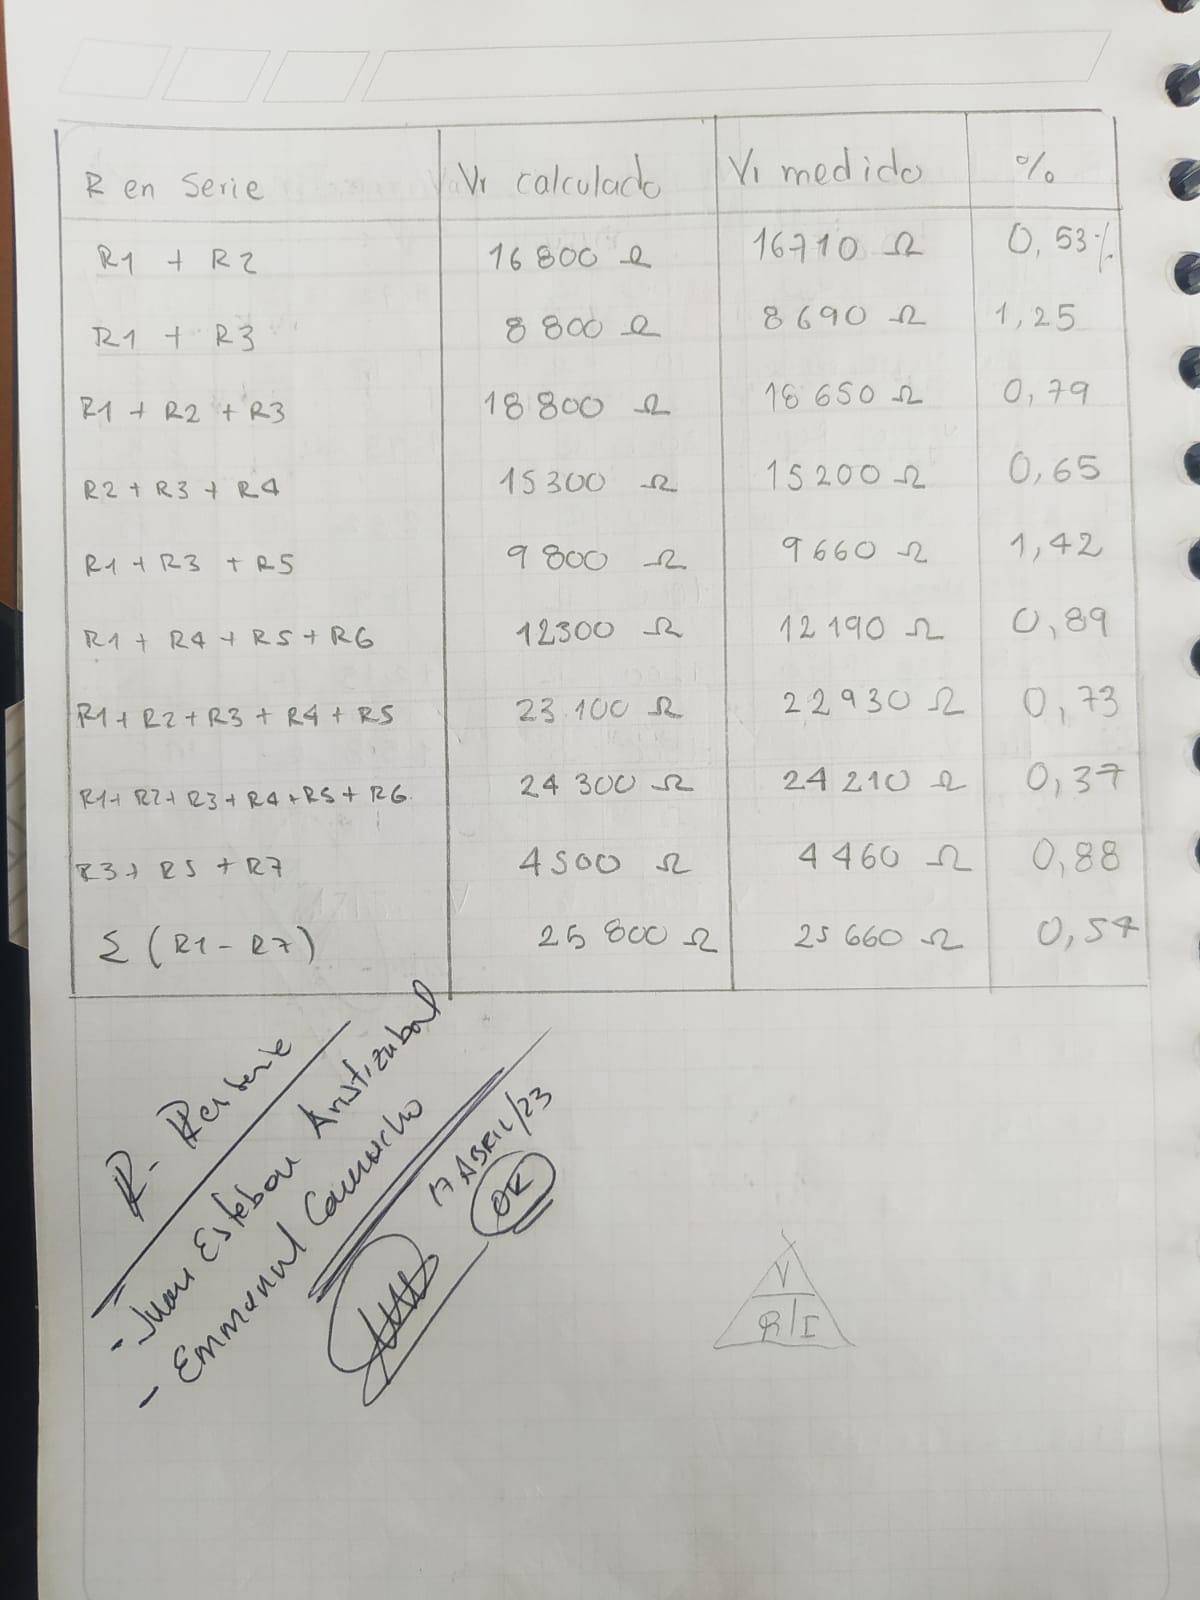 R en Serie Vr calculado Vr medido %
R1 + R2 16 800 Ω 16710 Ω 0,53%
R1 + R3 8 800 Ω 8 690 Ω 1,25
R1 + R2 + R3 18 800 Ω 18 650 Ω 0,79
R2 + R3 + R4 15 300 Ω 15 200 Ω 0,65
R1 + R3 + R5 9 800 Ω 9 660 Ω 1,42
R1 + R4 + R5 + R6 12300 Ω 12 190 Ω 0,89
R1 + R2 + R3 + R4 + R5 23 100 Ω 22 930 Ω 0,73
R1+ R2+ R3 + R4 +R5 + R6 24 300 Ω 24 210 Ω 0,37
R3 + R5 + R7 4 500 Ω 4 460 Ω 0,88
Σ (R1 - R7) 25 800 Ω 25 660 Ω 0,54
R - R en serie
- Juan Esteban Aristizabal
- Emmanuel Camacho
17 ABRIL/23
OK
V
R/I